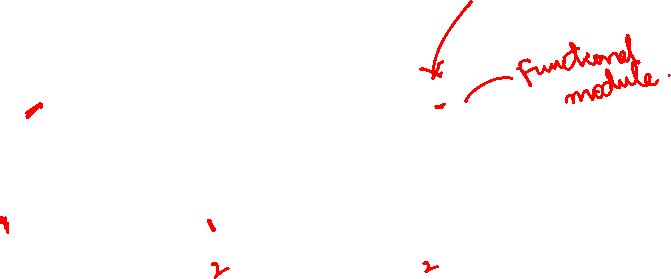 Functional
module.
2 2